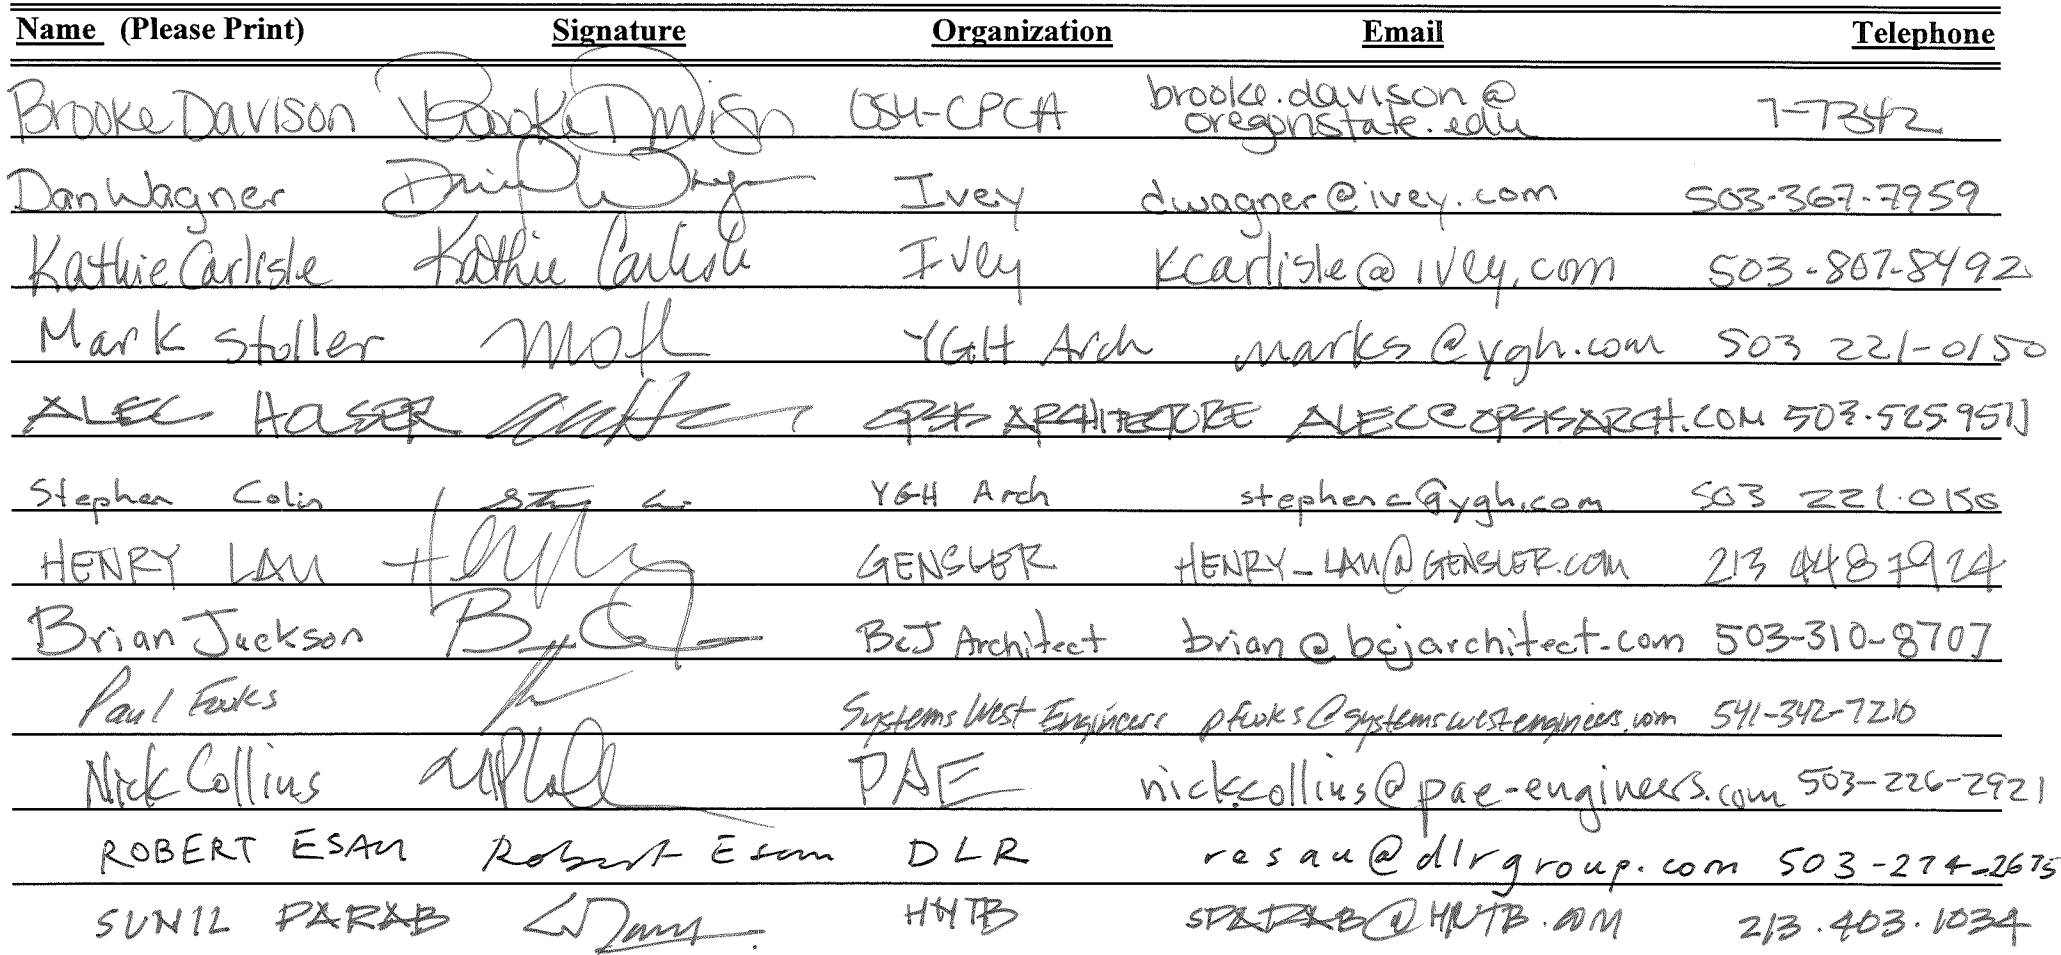 Name (Please Print) Signature Organization Email Telephone
Brooke Davison Brooke Davison OSU-CPCA brooke.davison@
oregonstate.edu 7-7342
Dan Wagner Ivey dwagner@ivey.com 503-367-7959
Kathie Carlisle Kathie Carlisle Ivey kcarlisle@ivey.com 503-807-8492
Mark Stoller YGH Arch marks@ygh.com 503 221-0150
ALEC HOLSER OPSIS ARCHITECTURE ALEC@OPSISARCH.COM 503.525.9511
Stephen Colin YGH Arch stephenc@ygh.com 503 221.0150
HENRY LAU GENSLER HENRY_LAU@GENSLER.COM 213 448 7924
Brian Jackson BCJ Architect brian@bcjarchitect.com 503-310-8707
Paul Fooks Systems West Engineers pfooks@systemswestengineers.com 541-342-7210
Nick Collins PAE nick.collins@pae-engineers.com 503-226-2921
ROBERT ESAU Robert Esau DLR resau@dlrgroup.com 503-274-2675
SUNIL PARAB HNTB SPARAB@HNTB.COM 213.403.1034